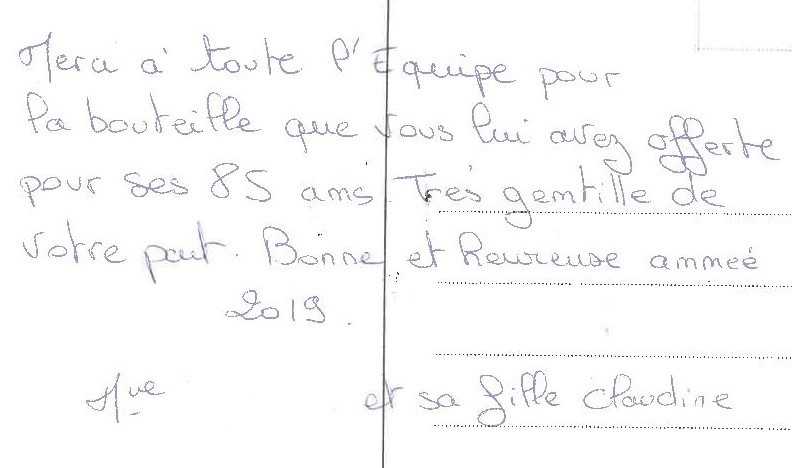 Merci à toute l'Equipe pour
la bouteille que vous lui avez offerte
pour ses 85 ans. Très gentille de
votre part. Bonne et heureuse anneé
2019.
Mve et sa fille Claudine